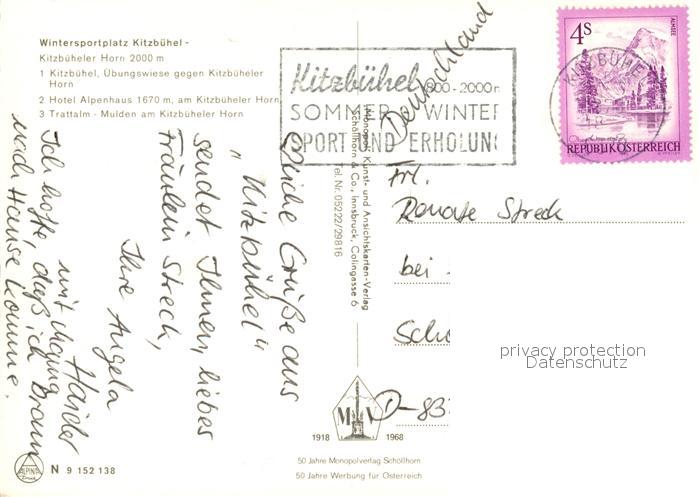 Wintersportplatz Kitzbühel -
Kitzbüheler Horn 2000 m
1 Kitzbühel, Übungswiese gegen Kitzbüheler
Horn
2 Hotel Alpenhaus 1670 m, am Kitzbüheler Horn
3 Trattalm - Mulden am Kitzbüheler Horn
Kitzbühel 800-2000m
SOMMER WINTER
SPORT UND ERHOLUNG
Deutschland
4S
ALMSEE
REPUBLIK ÖSTERREICH
KITZBÜHEL
Grüße aus
"Kitzbühel"
sendet Ihnen, liebes
Fräulein Streck,
Ihre Angela
Haider
Ich hoffe, daß ich Braun
nach Hause komme.
Monopol Kunst- und Ansichtskarten-Verlag
Schöllhorn & Co., Innsbruck, Colingasse 6
Tel. Nr. 05222/29816
Frl.
Renate Streck
bei
Sch
D-83
privacy protection
Datenschutz
MV
1918 1968
50 Jahre Monopolverlag Schöllhorn
50 Jahre Werbung für Österreich
ALPINA
N 9 152 138